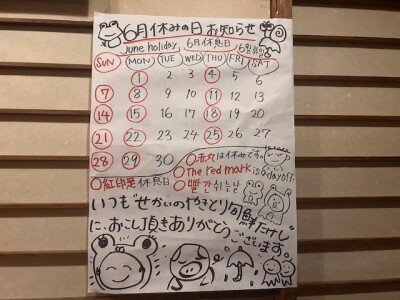 6月休みの日 お知らせ
June holiday 6月休息日 6월휴일
SUN MON TUE WED THU FRI SAT
1 2 3 4 5 6
7 8 9 10 11 12 13
14 15 16 17 18 19 20
21 22 23 24 25 26 27
28 29 30
○赤丸は休みです。
○The red mark is a day off.
○紅印是休息日 ○빨간 쉬는날
いつも"せかいのやきとり旬鮮たけし"
に、おこし頂きありがとうございます。